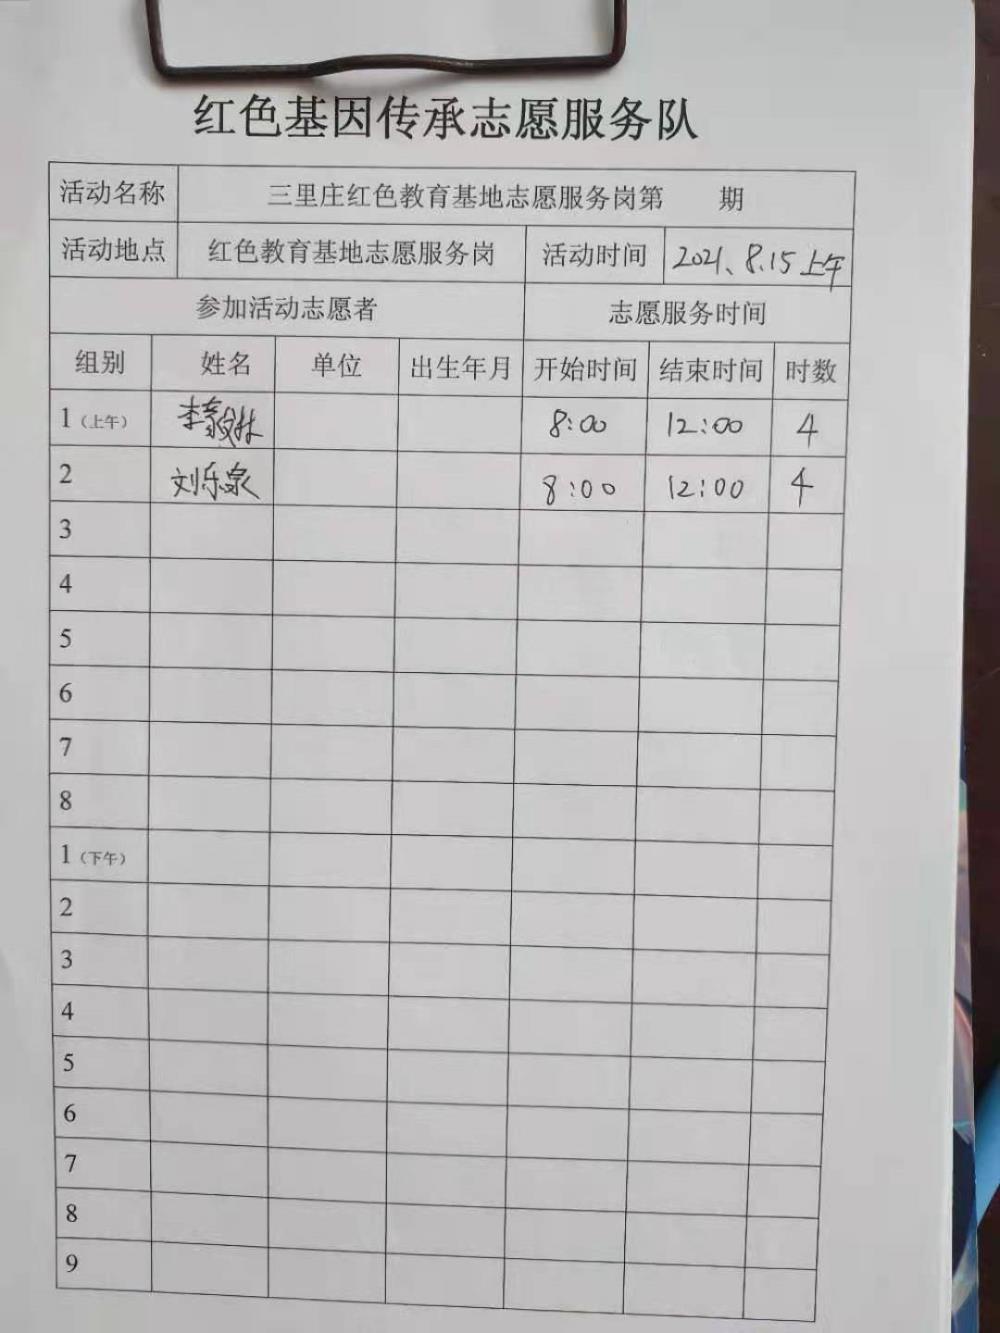 红色基因传承志愿服务队
活动名称 三里庄红色教育基地志愿服务岗第 期
活动地点 红色教育基地志愿服务岗 活动时间 2021、8.15上午
参加活动志愿者 志愿服务时间
组别 姓名 单位 出生年月 开始时间 结束时间 时数
1（上午） 李 8:00 12:00 4
2 刘乐泉 8:00 12:00 4
3
4
5
6
7
8
1（下午）
2
3
4
5
6
7
8
9